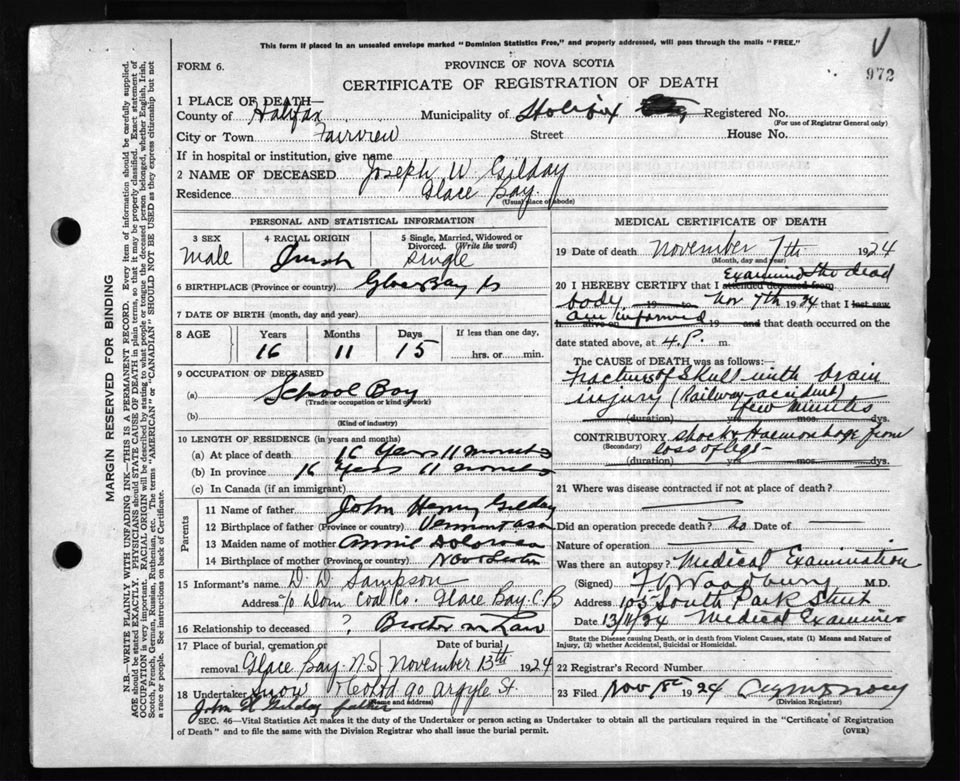 This form if placed in an unsealed envelope marked "Dominion Statistics Free," and properly addressed, will pass through the mails "FREE."
V
FORM 6.
PROVINCE OF NOVA SCOTIA
972
CERTIFICATE OF REGISTRATION OF DEATH
1 PLACE OF DEATH—
County of Halifax Municipality of Halifax Registered No.
(For use of Registrar General only)
City or Town Fairview Street House No.
If in hospital or institution, give name
2 NAME OF DECEASED Joseph W Gilday
Residence Glace Bay.
(Usual place of abode)
PERSONAL AND STATISTICAL INFORMATION
3 SEX
Male
4 RACIAL ORIGIN
5 Single, Married, Widowed or Divorced. (Write the word)
Single
6 BIRTHPLACE (Province or country) Glace Bay
7 DATE OF BIRTH (month, day and year)
8 AGE Years Months Days If less than one day,
16 11 15 hrs. or min.
9 OCCUPATION OF DECEASED
(a) School Boy
(Trade or occupation or kind of work)
(b)
(Kind of industry)
10 LENGTH OF RESIDENCE (in years and months)
(a) At place of death 16 Years 11 months
(b) In province 16 Years 11 months
(c) In Canada (if an immigrant)
Parents
11 Name of father John Henry Gilday
12 Birthplace of father (Province or country) Vermont USA
13 Maiden name of mother Annie
14 Birthplace of mother (Province or country) Nova Scotia
15 Informant's name D. D. Sampson
Address c/o Dom Coal Co. Glace Bay. C.B
16 Relationship to deceased ? Brother in Law
17 Place of burial, cremation or removal Glace Bay. N.S.
Date of burial November 13th 1924
18 Undertaker Snow 90 Argyle St.
(Name and address)
John H Gilday father
MEDICAL CERTIFICATE OF DEATH
19 Date of death November 7th. 1924
(Month, day and year)
Examined the dead
20 I HEREBY CERTIFY that I attended deceased from
body 19 to Nov 7th 1924 that I last saw
am informed
h alive on 19 and that death occurred on
date stated above, at 4.P. m.
The CAUSE of DEATH was as follows:
Fracture of Skull with brain
injury (Railway accident)
few minutes
(duration) yrs mos. dys.
CONTRIBUTORY Shock & Hemorrhage from
(Secondary) loss of legs -
(duration) yrs mos. dys.
21 Where was disease contracted if not at place of death?
Did an operation precede death? no Date of
Nature of operation
Was there an autopsy? Medical Examination
(Signed) Woodbury M.D.
Address 105 South Park Street
Date 13/11/24 Medical Examiner
State the Disease causing Death, or in death from Violent Causes, state (1) Means and Nature of Injury, (2) whether Accidental, Suicidal or Homicidal.
22 Registrar's Record Number
23 Filed Nov 1924
(Division Registrar)
SEC. 46—Vital Statistics Act makes it the duty of the Undertaker or person acting as Undertaker to obtain all the particulars required in the "Certificate of Registration
of Death" and to file the same with the Division Registrar who shall issue the burial permit. (OVER)
MARGIN RESERVED FOR BINDING
N.B.—WRITE PLAINLY WITH UNFADING INK—THIS IS A PERMANENT RECORD. Every item of information should be carefully supplied.
AGE should be stated EXACTLY. PHYSICIANS should STATE CAUSE OF DEATH in plain terms, so that it may be properly classified. Exact statement of
OCCUPATION is very important. RACIAL ORIGIN will be described by stating to what people or tongue the deceased person belonged, whether English, Irish,
Scotch, French, German, Russian, Ruthenian, etc. The terms "AMERICAN" or "CANADIAN" SHOULD NOT BE USED as they express citizenship but not
a race or people. See instructions on back of Certificate.